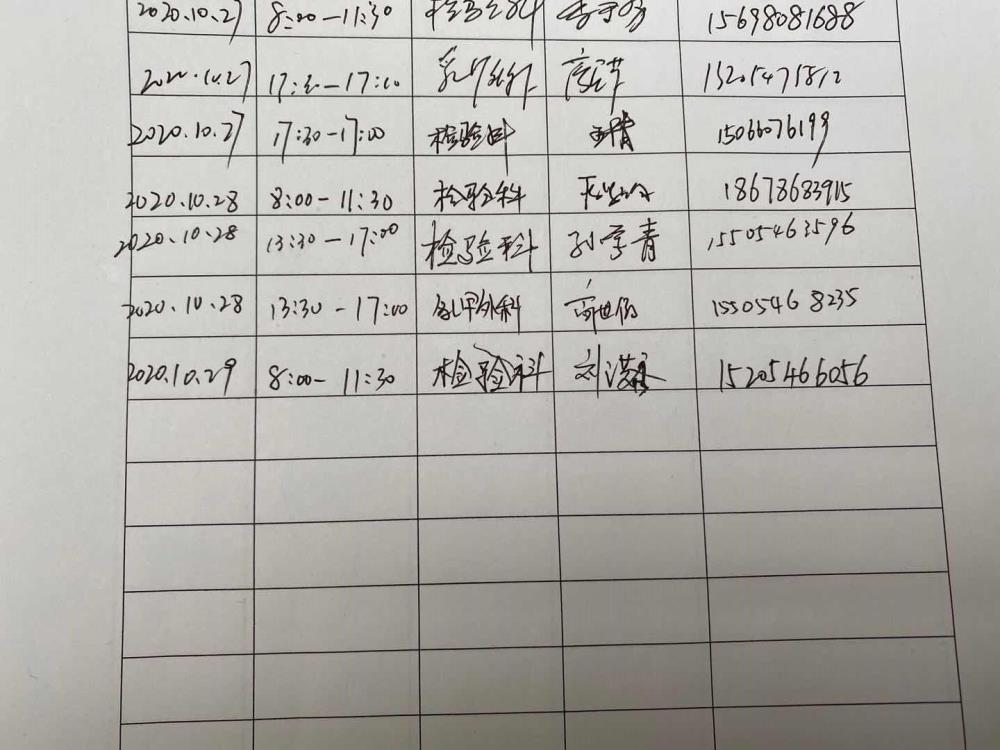 2020.10.27 8:00-11:30 15698081688
2020.10.27 17:30-17:00 乳甲外科
2020.10.27 17:30-17:00 检验科 15066076199
2020.10.28 8:00-11:30 检验科 18678683915
2020.10.28 13:30-17:00 检验科 孙学青 15505463596
2020.10.28 13:30-17:00 乳甲外科 15505468235
2020.10.29 8:00-11:30 检验科 刘洪 15205466056